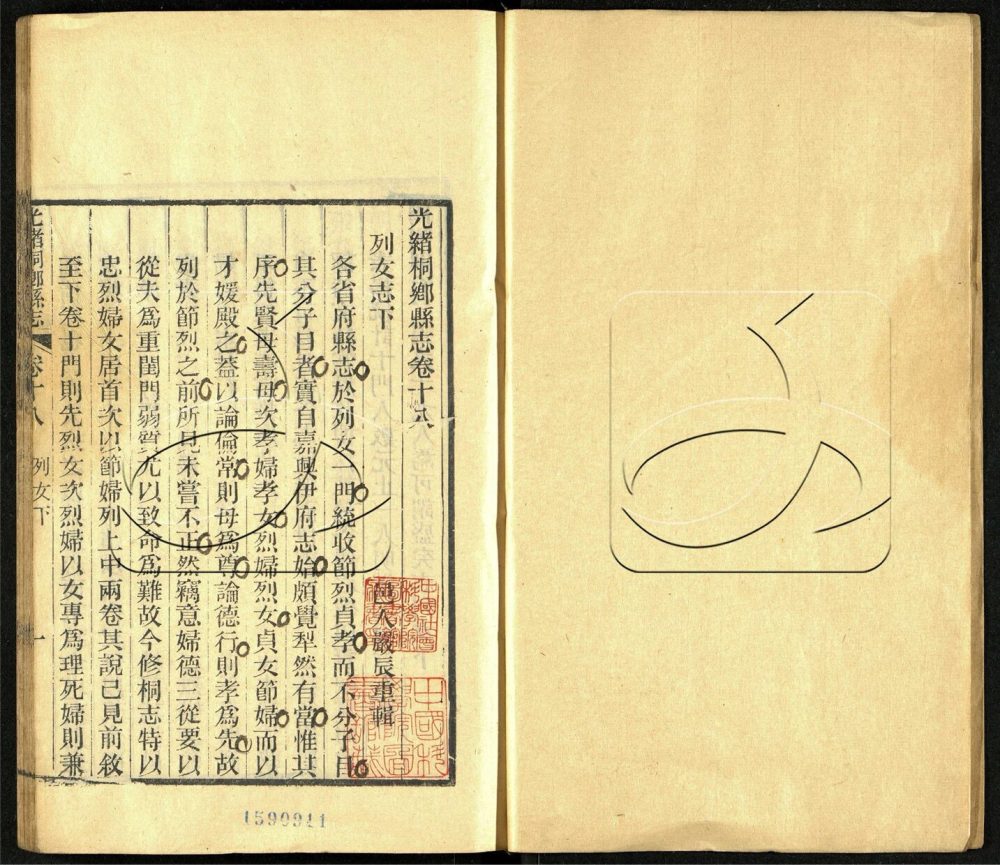 光緒桐鄉縣志卷十八
列女志下
邑人嚴辰重輯
各省府縣志於列女一門統收節烈貞孝而不分子目
其分子目者實自嘉興伊府志始頗覺犁然有當惟其
序先賢母壽母次孝婦孝女烈婦烈女貞女節婦而以
才媛殿之葢以論倫常則母爲尊論德行則孝爲先故
列於節烈之前所見未嘗不正然竊意婦德三從要以
從夫爲重閨門弱質尤以致命爲難故今修桐志特以
忠烈婦女居首次以節婦列上中兩卷其說已見前敘
至下卷十門則先烈女次烈婦以女專爲理死婦則兼
光緒桐鄉縣志
卷十八
列女下
一
1590911